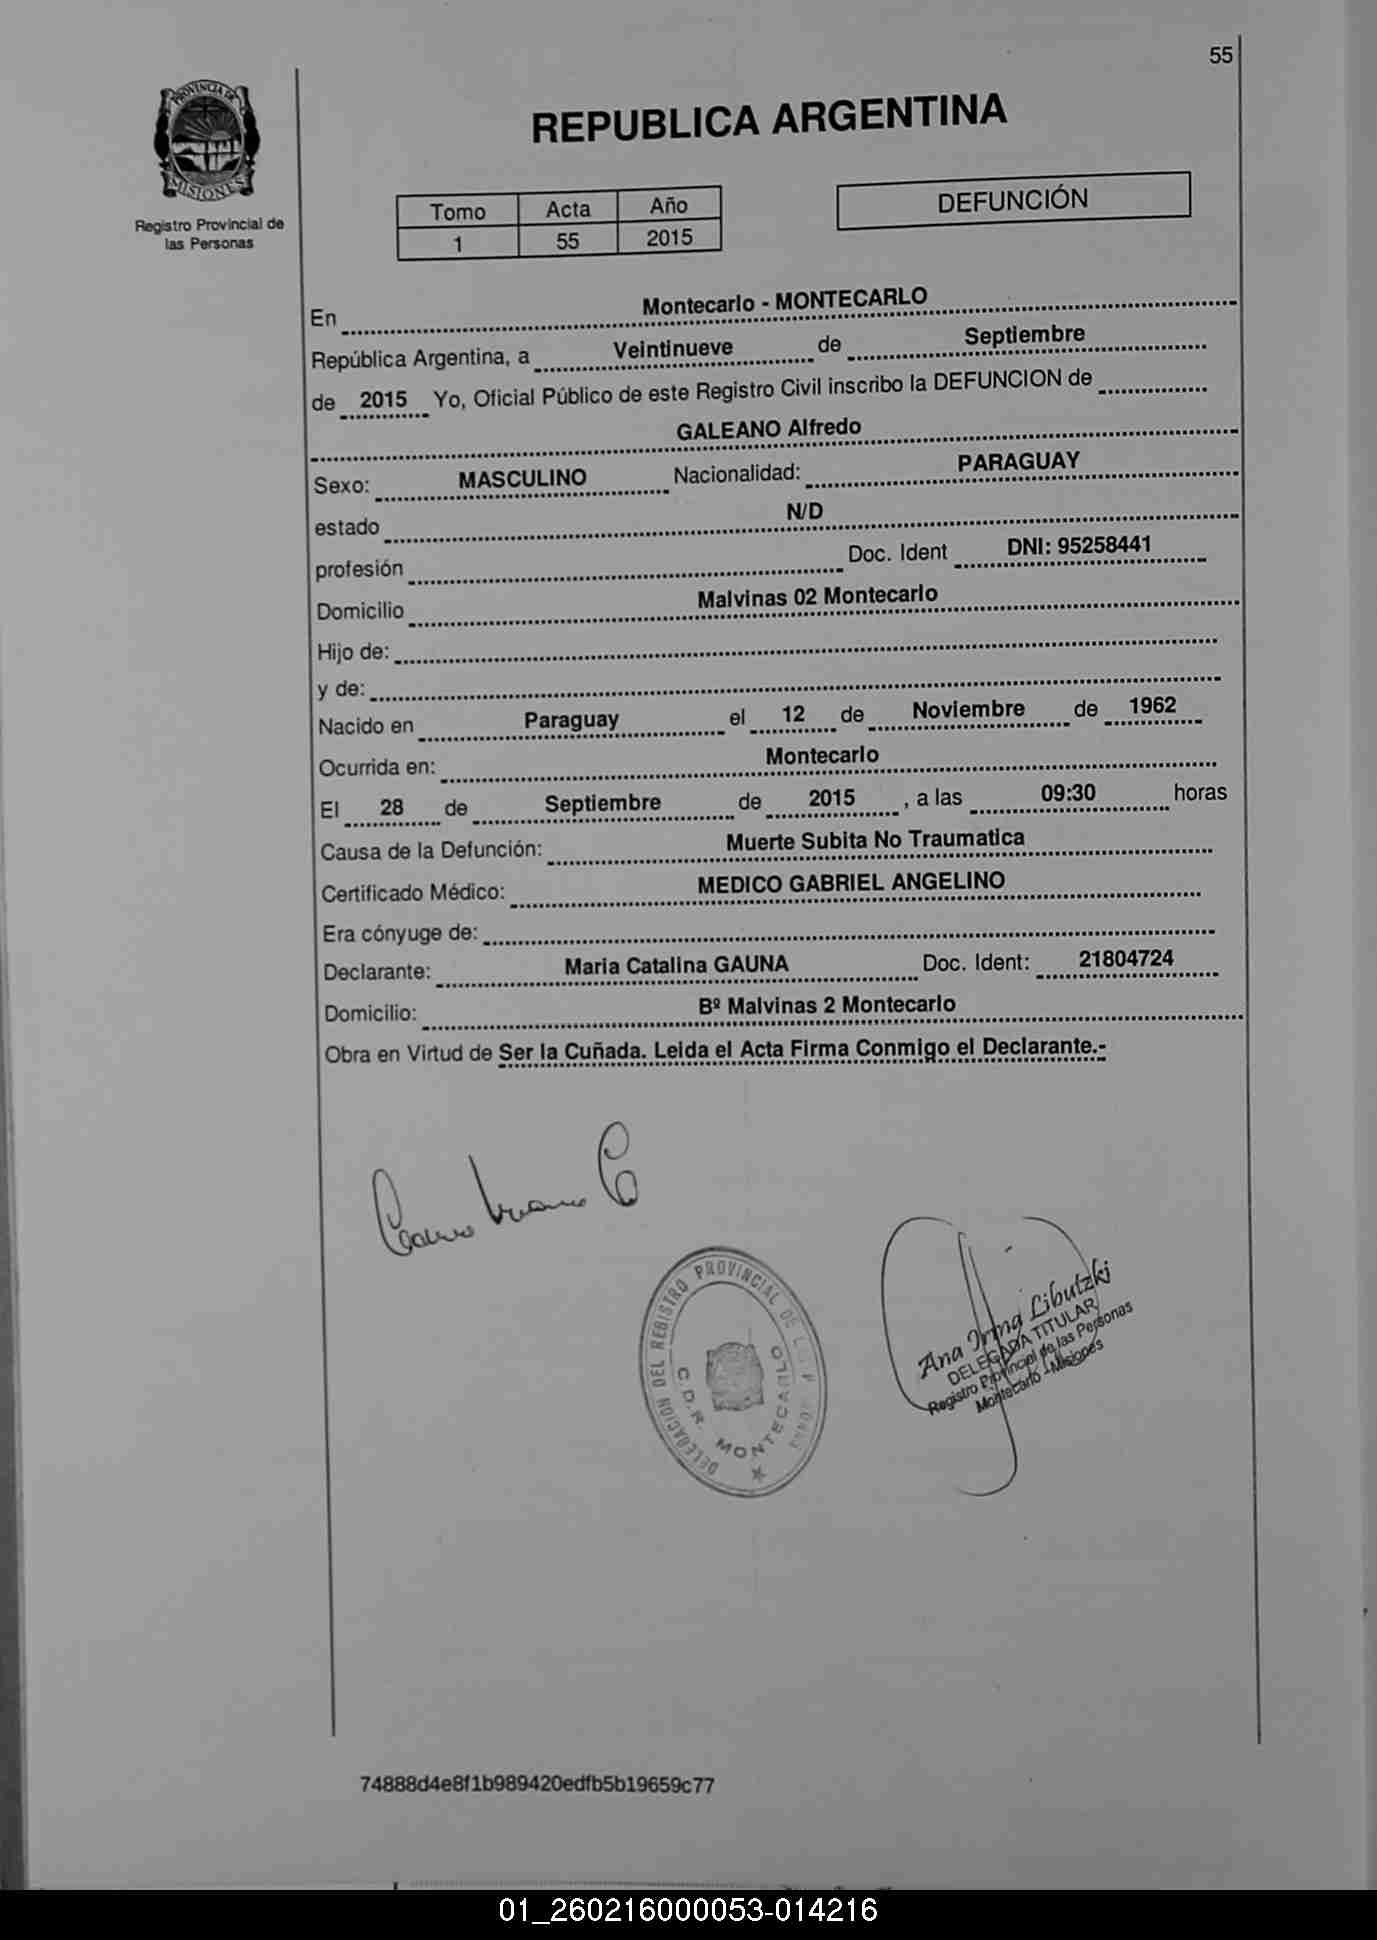 55
PROVINCIA DE
MISIONES
Registro Provincial de
las Personas
REPUBLICA ARGENTINA
Tomo Acta Año
1 55 2015
DEFUNCIÓN
En Montecarlo - MONTECARLO
República Argentina, a Veintinueve de Septiembre
de 2015 Yo, Oficial Público de este Registro Civil inscribo la DEFUNCION de
GALEANO Alfredo
Sexo: MASCULINO Nacionalidad: PARAGUAY
estado N/D
profesión Doc. Ident DNI: 95258441
Domicilio Malvinas 02 Montecarlo
Hijo de:
y de:
Nacido en Paraguay el 12 de Noviembre de 1962
Ocurrida en: Montecarlo
El 28 de Septiembre de 2015 , a las 09:30 horas
Causa de la Defunción: Muerte Subita No Traumatica
Certificado Médico: MEDICO GABRIEL ANGELINO
Era cónyuge de:
Declarante: Maria Catalina GAUNA Doc. Ident: 21804724
Domicilio: Bº Malvinas 2 Montecarlo
Obra en Virtud de Ser la Cuñada. Leida el Acta Firma Conmigo el Declarante.-
DELEGACION DEL REGISTRO PROVINCIAL DE
C.D.R. MONTECARLO
Ana Irma Libutzki
DELEGADA TITULAR
Registro Provincial de las Personas
Montecarlo - Misiones
74888d4e8f1b989420edfb5b19659c77
01_260216000053-014216